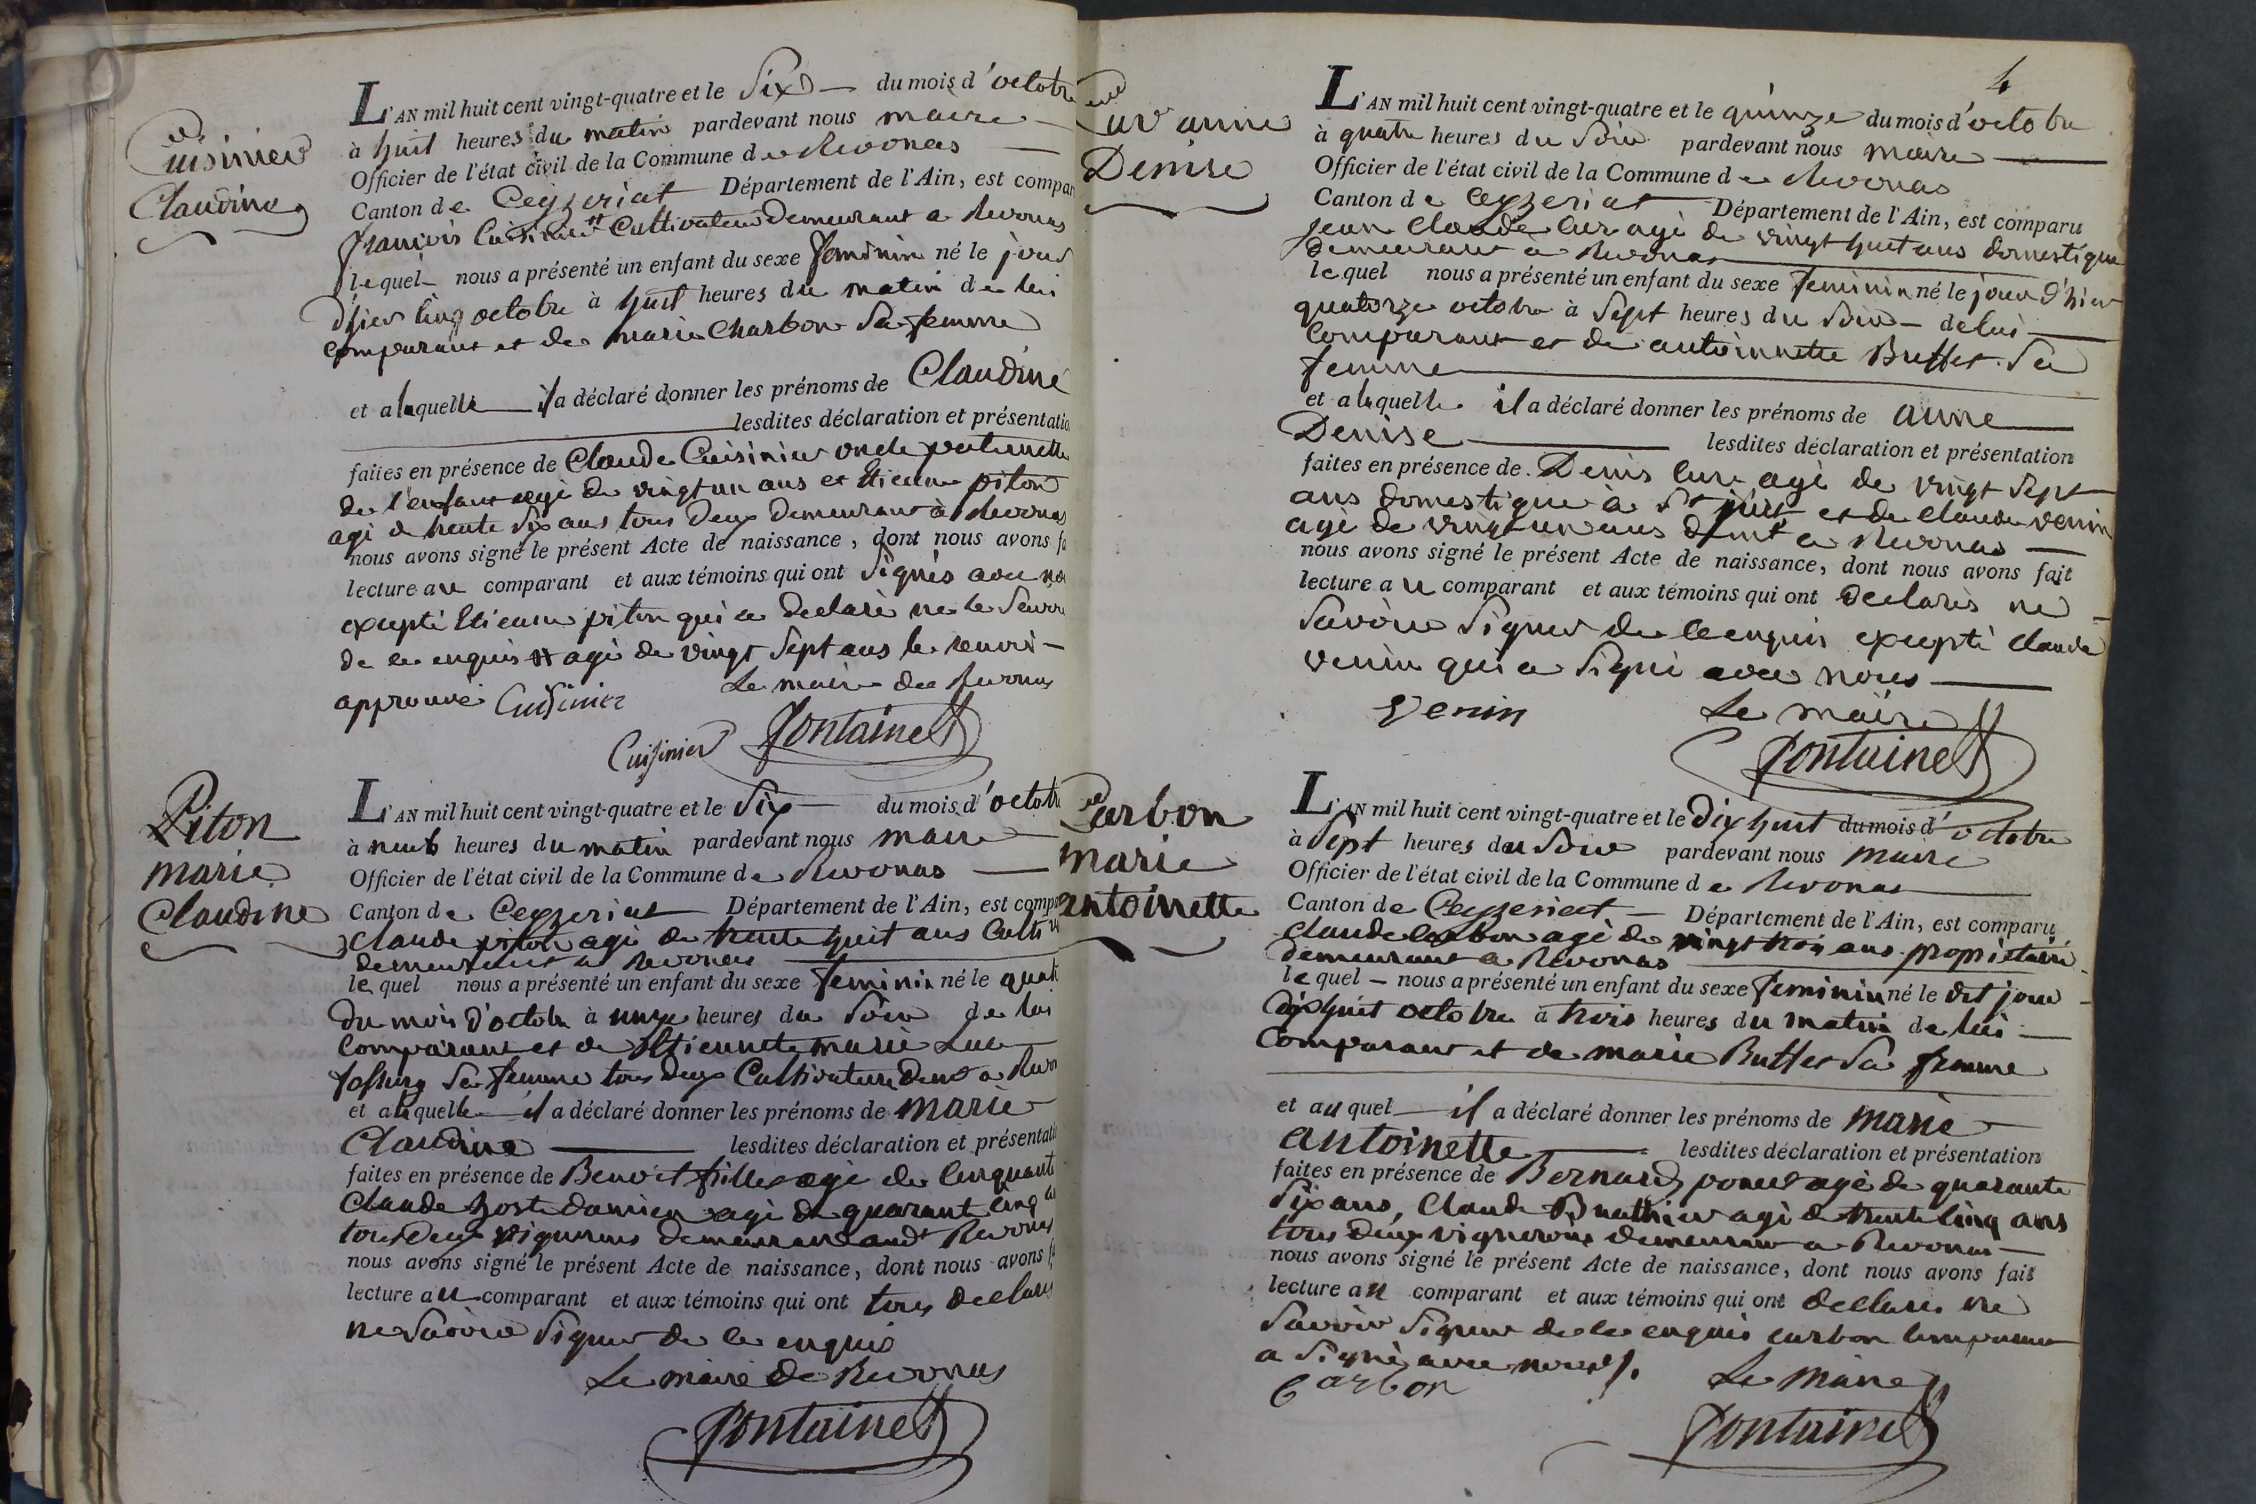 Cuisinier
Claudine
L'AN mil huit cent vingt-quatre et le Six du mois d'octobre
à huit heures du matin pardevant nous maire
Officier de l'état civil de la Commune de Revonas
Canton de Ceyzeriat Département de l'Ain, est compar
françois Cuisinier # Cultivateur Demeurant a Revonas
lequel nous a présenté un enfant du sexe feminin né le jour
d'hier cinq octobre à huit heures du matin de lui
comparant et de marie Charbon Sa femme
et a laquelle il a déclaré donner les prénoms de Claudine
lesdites déclaration et présentatio
faites en présence de Claude Cuisinier oncle paternelle
de l'enfant agé de vingt un ans et Etienne piton
agé de trente Six ans tous Deux Demeurant à Revonas
nous avons signé le présent Acte de naissance, dont nous avons fa
lecture au comparant et aux témoins qui ont Signés avec nou
excepté Etienne piton qui a declaré ne le Savoir
de ce enquis # agé de vingt Sept ans le renvoi
approuvé Cuisinier Le maire de Revonas
Cuisinier Fontaine
Piton
marie
Claudine
L'AN mil huit cent vingt-quatre et le Six du mois d'octob
à neuf heures du matin pardevant nous maire
Officier de l'état civil de la Commune de Revonas
Canton de Ceyzeriat Département de l'Ain, est compa
Claude piton agé de trente huit ans Cultiv
demeurant a Revonas
lequel nous a présenté un enfant du sexe feminin né le quat
du mois d'octobr à unze heures du Soir de lui
Comparant et de Etiennette marie
Sa femme tous deux Cultivateur Demt a Revon
et a laquelle il a déclaré donner les prénoms de marie
Claudine lesdites déclaration et présentati
faites en présence de Benoit agé de Cinquante
Claude agé de quarante cinq an
tous deux vignerons demeurant audt Revonas
nous avons signé le présent Acte de naissance, dont nous avons f
lecture au comparant et aux témoins qui ont tous declarés
ne Savoir Signer de ce enquis
Le maire de Revonas
Fontaine
4
Cur anne
Denise
L'AN mil huit cent vingt-quatre et le quinze du mois d'octobre
à quatre heures du Soir pardevant nous maire
Officier de l'état civil de la Commune de Revonas
Canton de Ceyzeriat Département de l'Ain, est comparu
jean Claude Cur agé de vingt huit ans domestique
demeurant à Revonas
lequel nous a présenté un enfant du sexe feminin né le jour d'hier
quatorze octobre à Sept heures du Soir de lui
Comparant et de antoinette Buffet Sa
femme
et a laquelle il a déclaré donner les prénoms de anne
Denise lesdites déclaration et présentation
faites en présence de Denis Cur agé de vingt Sept
ans domestique à St just et de Claude venin
agé de vingt un ans demt a Revonas
nous avons signé le présent Acte de naissance, dont nous avons fait
lecture au comparant et aux témoins qui ont declarés ne
Savoir Signer de ce enquis excepté Claude
venin qui a Signé avec nous
Venin Le maire
Fontaine
Carbon
marie
antoinette
L'AN mil huit cent vingt-quatre et le Dix huit du mois d'octobre
à Sept heures du Soir pardevant nous maire
Officier de l'état civil de la Commune de Revonas
Canton de Ceyzeriat Département de l'Ain, est comparu
Claude Carbon agé de vingt trois ans proprietaire
demeurant a Revonas
lequel nous a présenté un enfant du sexe feminin né le dit jour
dixhuit octobre à trois heures du matin de lui
Comparant et de marie Buffet Sa femme
et au quel il a déclaré donner les prénoms de marie
antoinette lesdites déclaration et présentation
faites en présence de Bernard agé de quarante
Six ans, Claude agé de trente cinq ans
tous deux vignerons demeurant a Revonas
nous avons signé le présent Acte de naissance, dont nous avons fait
lecture au comparant et aux témoins qui ont declaré ne
Savoir Signer de ce enquis carbon comparant
a Signé avec nous
Carbon Le maire
Fontaine